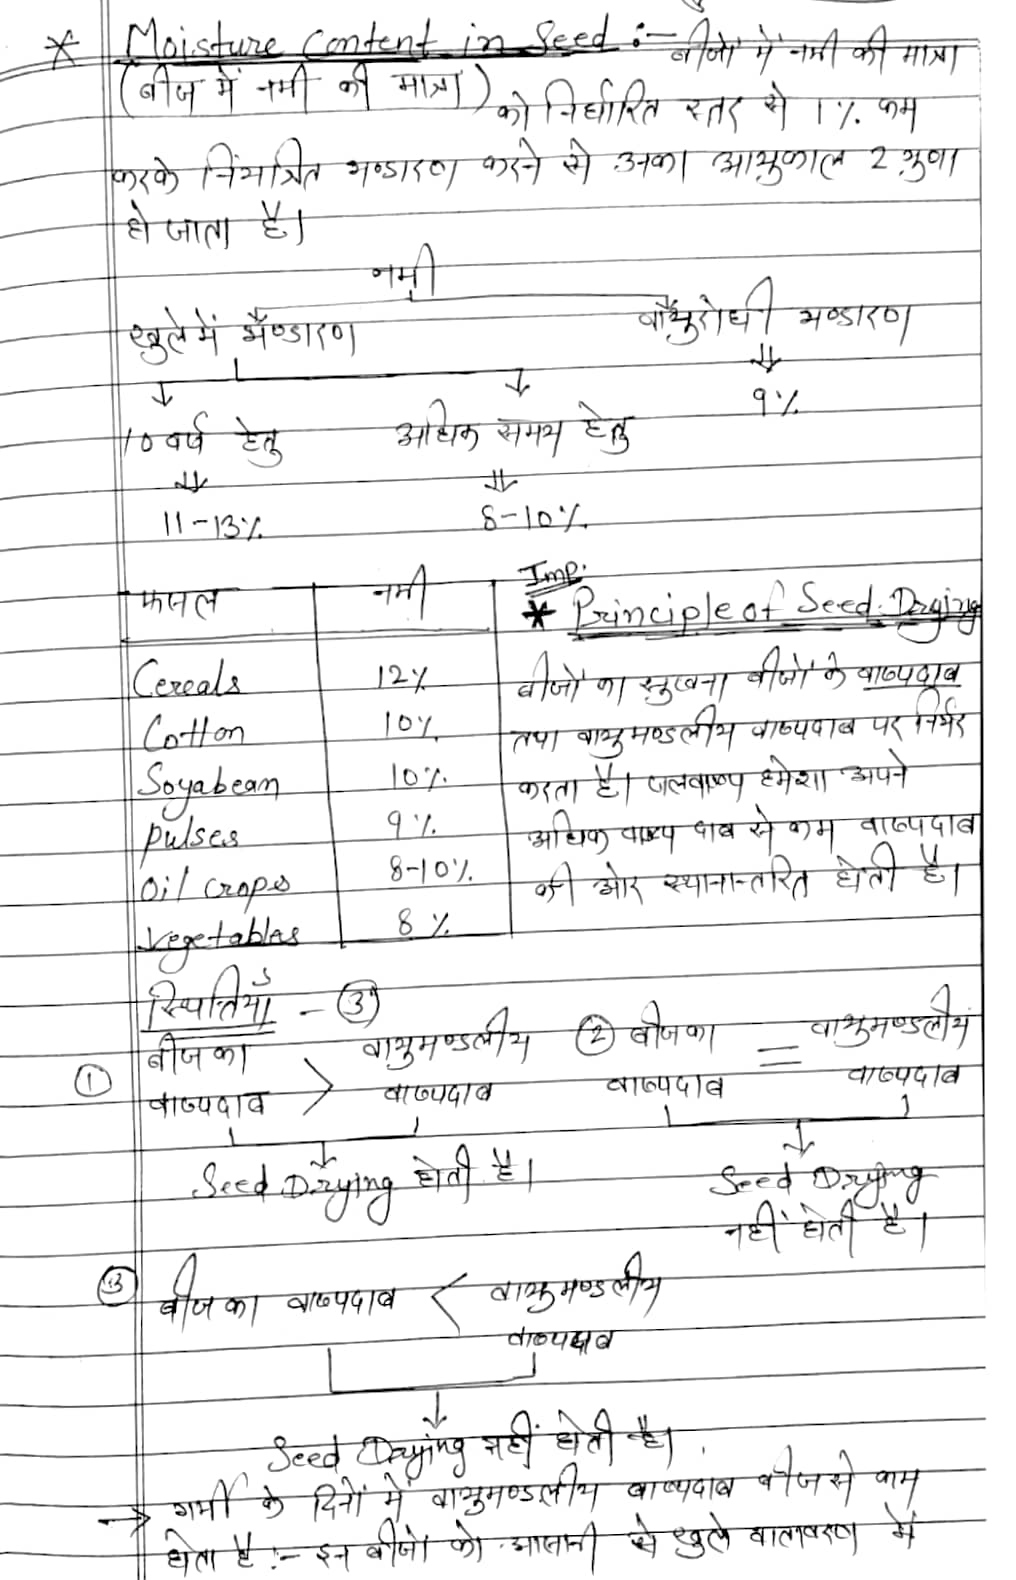 * Moisture Content in Seed :- बीजों में नमी की मात्रा
(बीज में नमी की मात्रा) को निर्धारित स्तर से 1% कम
करके नियंत्रित भण्डारण करने से उनका आयुकाल 2 गुणा
हो जाता है।
नमी
खुले में भण्डारण वायुरोधी भण्डारण
↓ ↓ ⇓
10 वर्ष हेतु अधिक समय हेतु 9%
⇓ ⇓
11-13% 8-10%
फसल नमी
Cereals 12%
Cotton 10%
Soyabean 10%
pulses 9%
Oil crops 8-10%
vegetables 8%
Imp.
* Principle of Seed Drying
बीजों का सुखना बीजों के वाष्पदाब
तथा वायुमण्डलीय वाष्पदाब पर निर्भर
करता है। जलवाष्प हमेशा अपने
अधिक वाष्प दाब से कम वाष्पदाब
की ओर स्थानान्तरित होती है।
स्थितियाँ - ③
① बीज का वाष्पदाब > वायुमण्डलीय वाष्पदाब
↓
Seed Drying होती है।
② बीज का वाष्पदाब = वायुमण्डलीय वाष्पदाब
↓
Seed Drying
नहीं होती है।
③ बीज का वाष्पदाब < वायुमण्डलीय
वाष्पदाब
↓
Seed Drying नहीं होती है।
→ गर्मी के दिनों में वायुमण्डलीय वाष्पदाब बीज से कम
होता है :- इन बीजों को आसानी से खुले वातावरण में